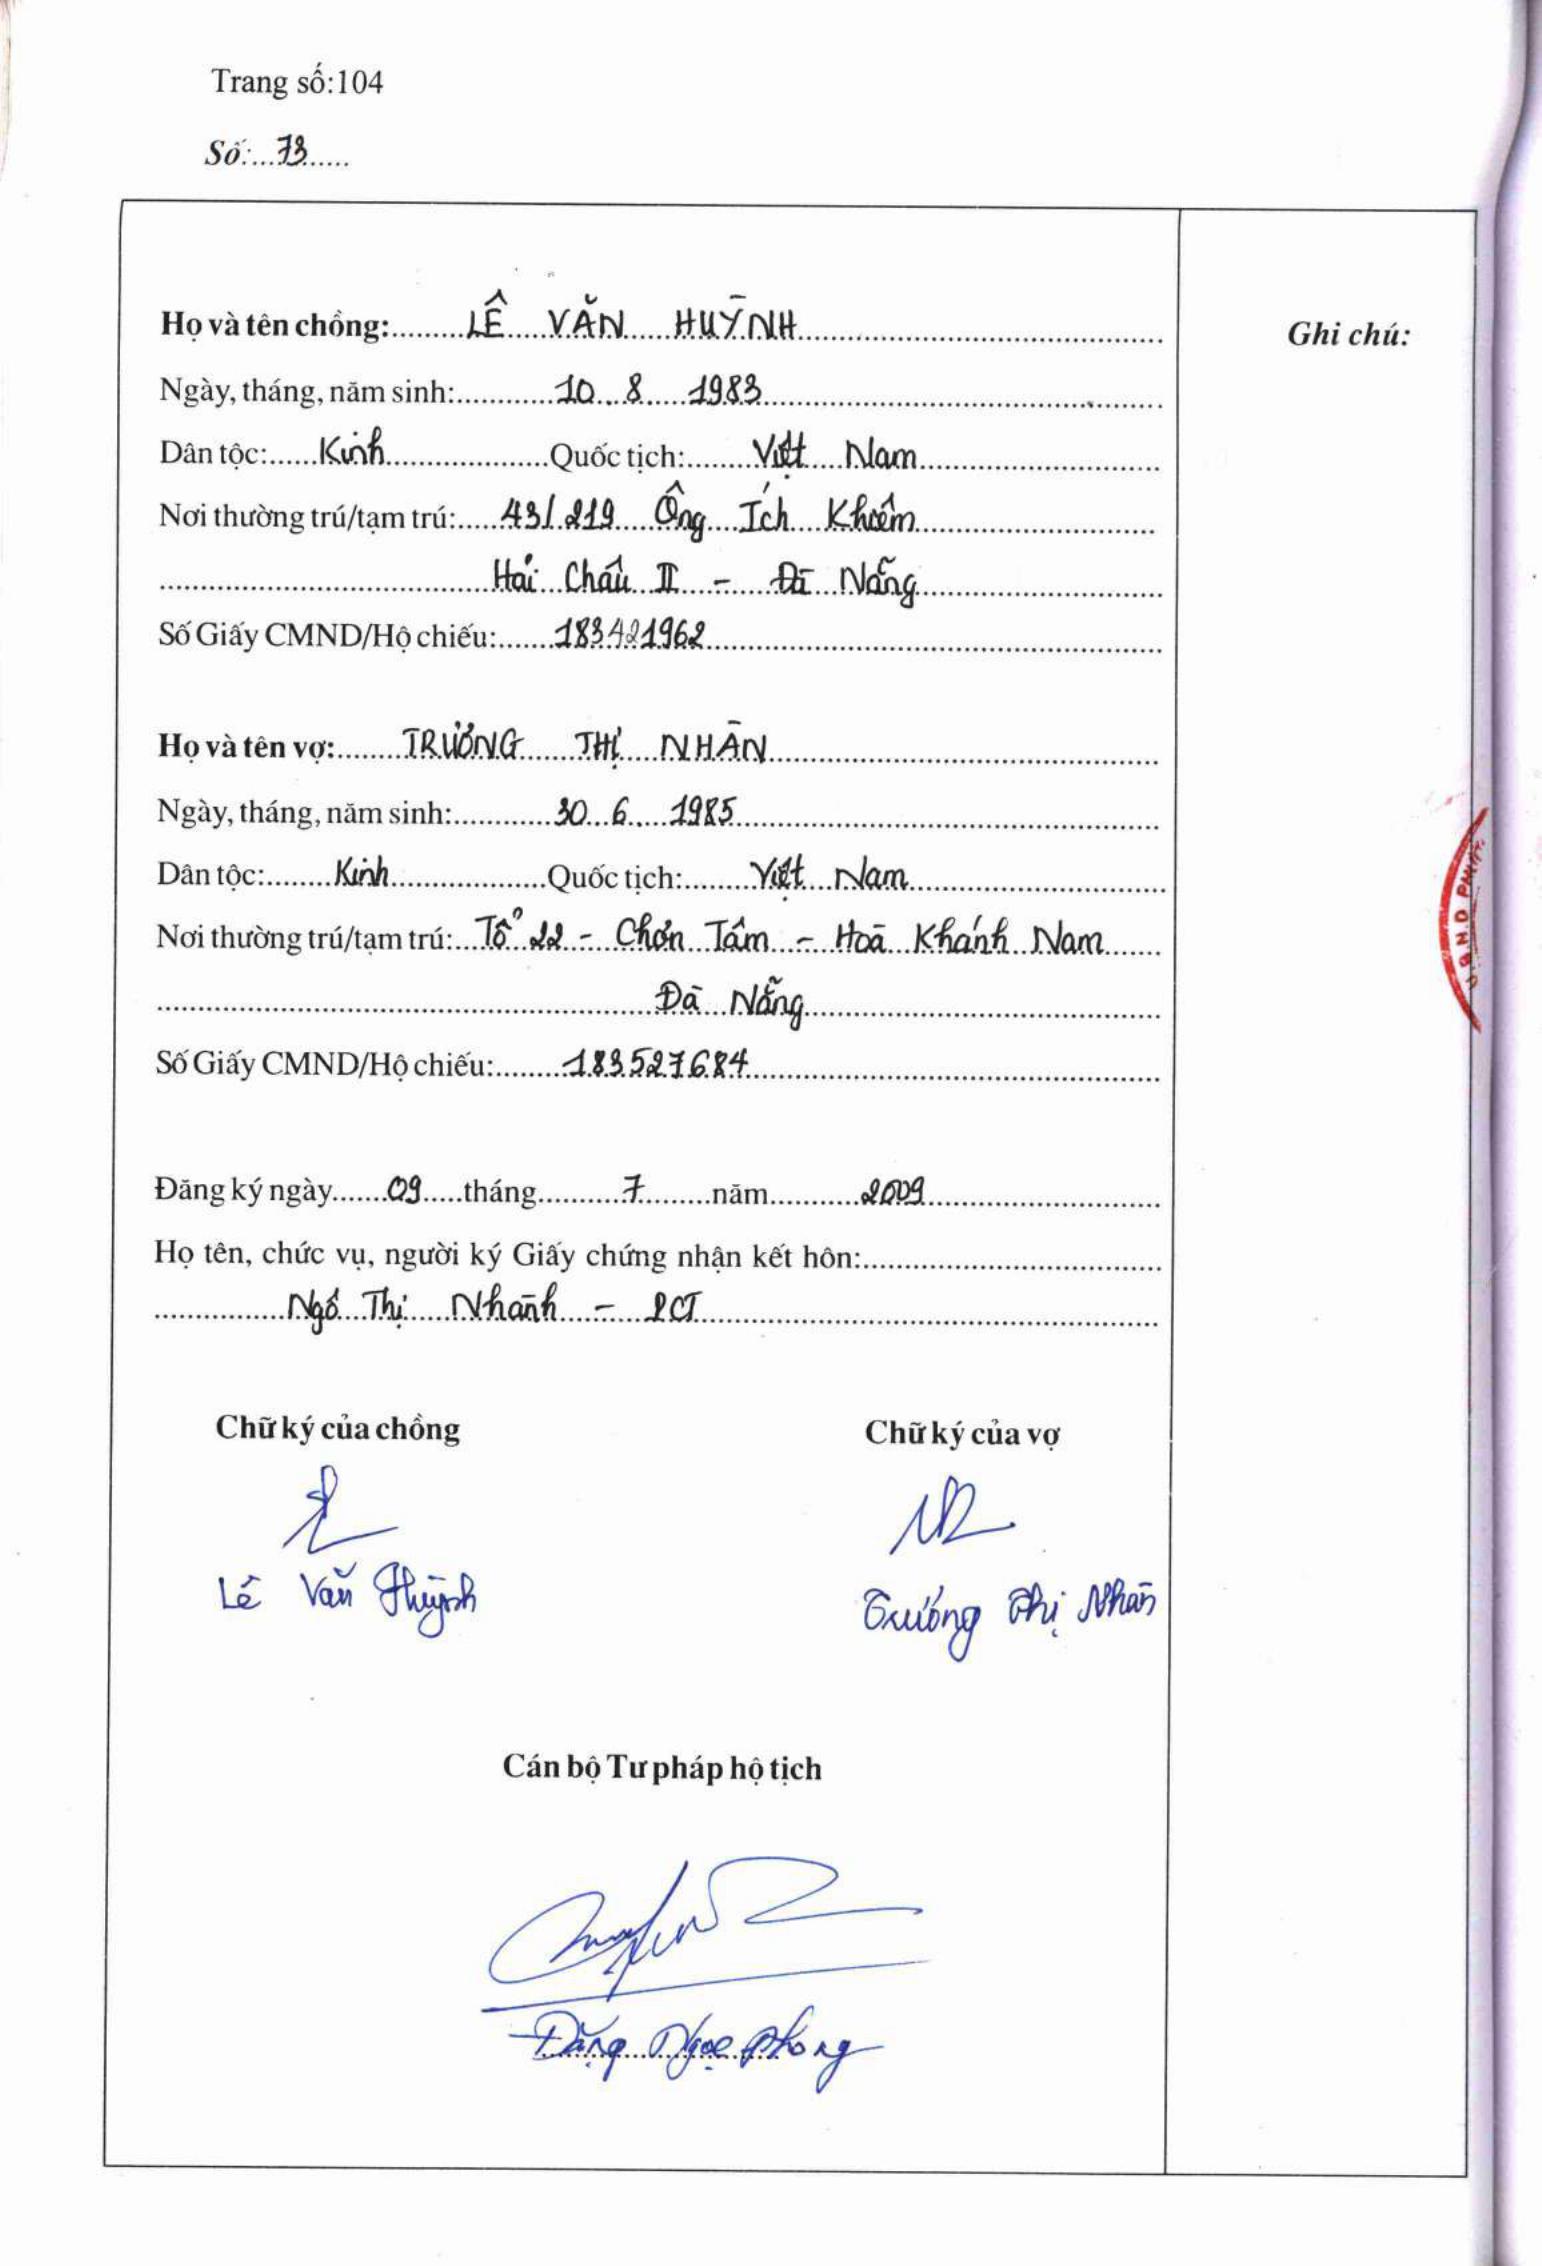 Trang số:104
Số:...73......
Họ và tên chồng: LÊ VĂN HUỲNH
Ghi chú:
Ngày, tháng, năm sinh: 10 8 1983
Dân tộc: Kinh Quốc tịch: Việt Nam
Nơi thường trú/tạm trú: 43/219 Ông Ích Khiêm
Hải Châu II - Đà Nẵng
Số Giấy CMND/Hộ chiếu: 183421962
Họ và tên vợ: TRƯƠNG THỊ NHÀN
Ngày, tháng, năm sinh: 30 6 1985
Dân tộc: Kinh Quốc tịch: Việt Nam
Nơi thường trú/tạm trú: Tổ 22 - Chơn Tâm - Hoà Khánh Nam
Đà Nẵng
Số Giấy CMND/Hộ chiếu: 183527684
Đăng ký ngày 09 tháng 7 năm 2009
Họ tên, chức vụ, người ký Giấy chứng nhận kết hôn:
Ngô Thị Nhành - PCT
Chữ ký của chồng
Chữ ký của vợ
Lê Văn Huỳnh
Trương Thị Nhàn
Cán bộ Tư pháp hộ tịch
Đặng Ngọc Phong